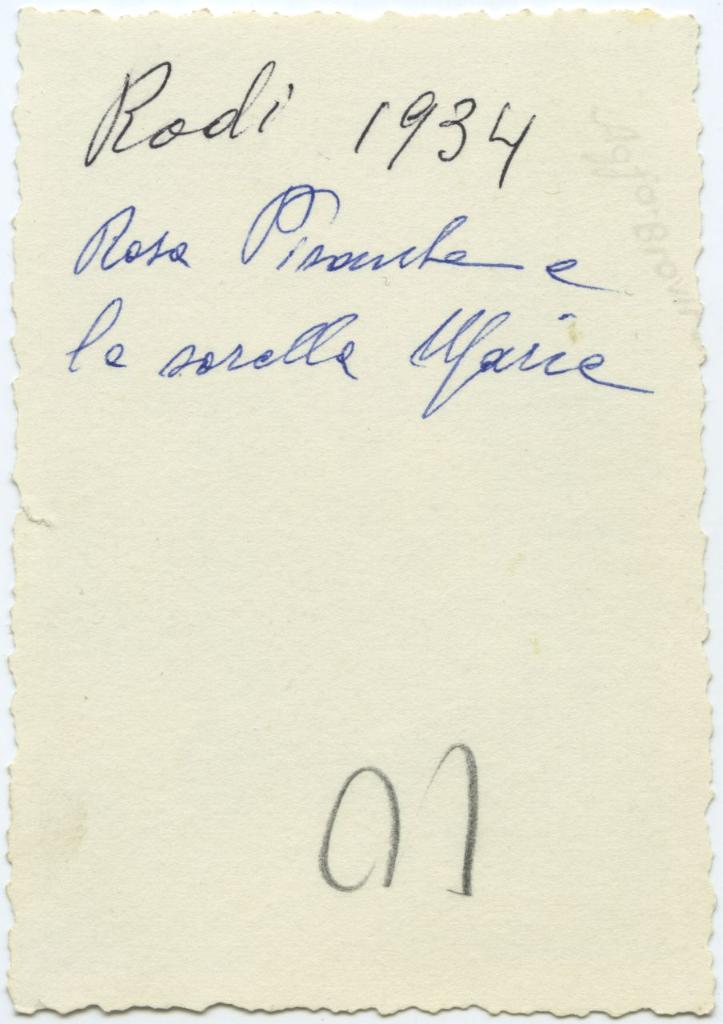 Rodi 1934
Rosa Pisante e
la sorella Maria